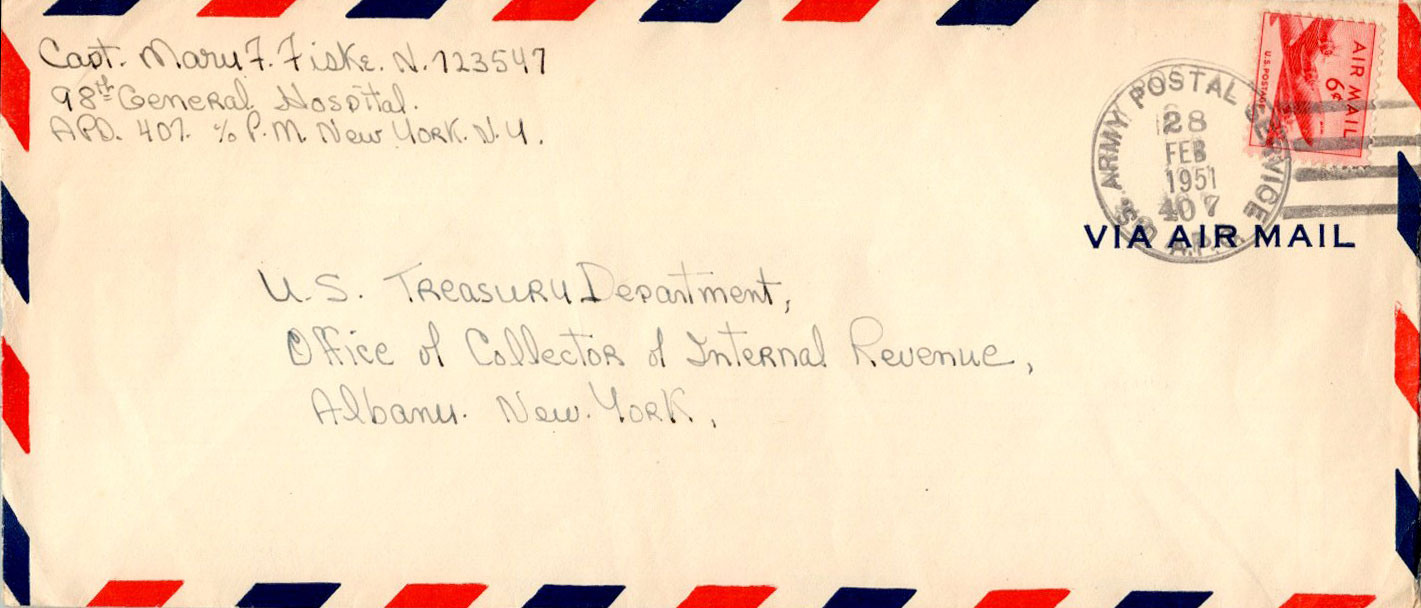 Capt. Mary F. Fiske. N. 723547
98th General Hospital.
APO. 407. c/o P.M. New York. N.Y.
AIR MAIL
6¢
U.S. POSTAGE
U.S. ARMY POSTAL SERVICE
28
FEB
1951
407
A.P.O.
VIA AIR MAIL
U.S. Treasury Department,
Office of Collector of Internal Revenue,
Albany. New. York,